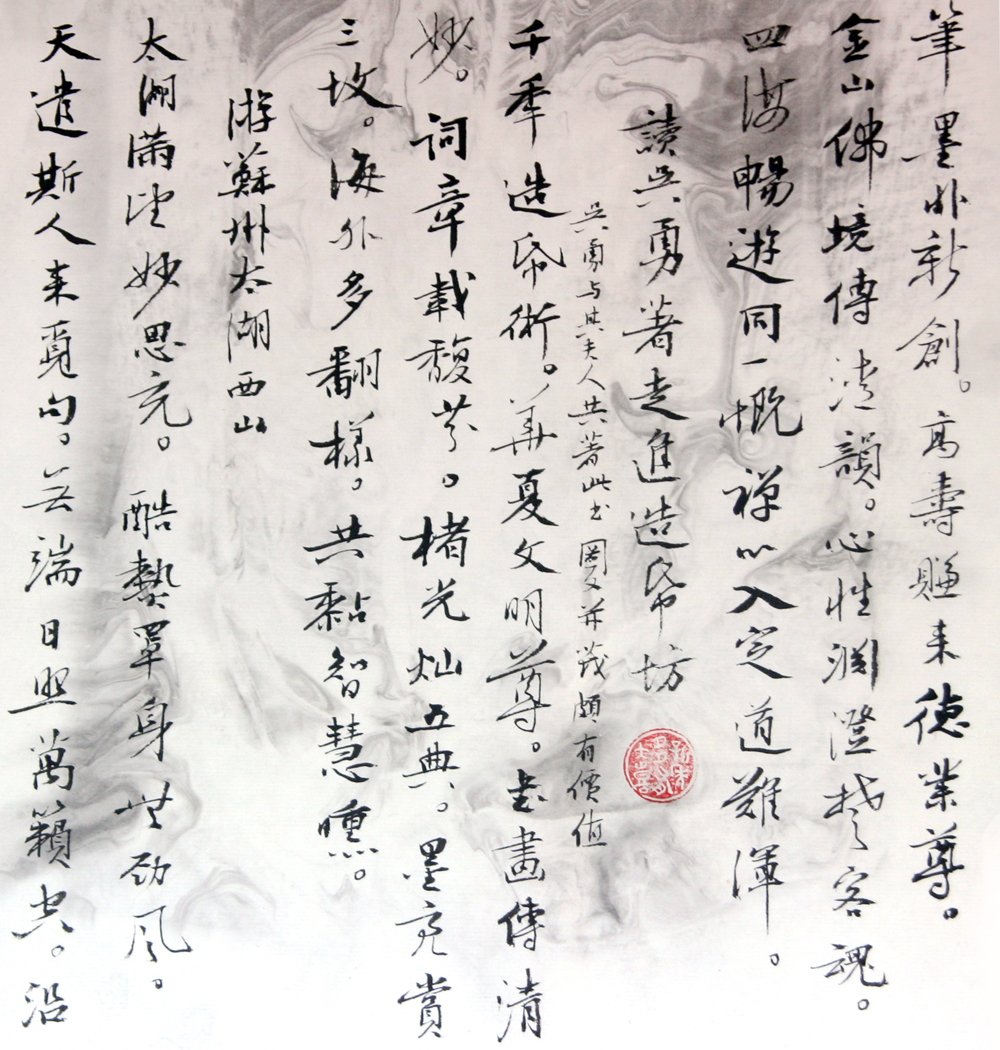 筆墨非新創。高壽賜来德業尊。
金山佛境傳清韻。心性淵澄梵客魂。
四海暢遊同一概禪心入定道難渾。
讀吳勇著走進造帋坊
吳勇与其夫人共著此书 圖文并茂頗有價值
千年造帋術。華夏文明尊。书畫傳清
妙。詞章載馥芬。楮光灿五典。墨亮賞
三坟。海外多翻樣。共黏智慧曛。
游蘇州太湖西山
太湖滿望妙思充。酷熱罩身無劲风。
天遣斯人来覓句。無端日照萬籟空。沿